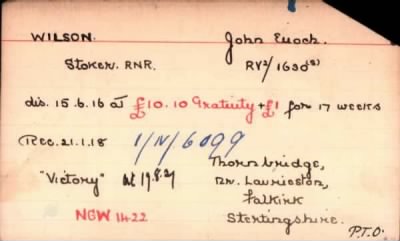 WILSON. John Enoch.
Stoker. RNR. RV2/1630(S)
dis. 15.6.16 at £10.10 Gratuity + £1 for 17 weeks
Rec. 21.1.18 1/N/6099
"Victory" at 19.8.21 Thornbridge,
Nr. Laurieston,
Falkirk
NGW 14-22 Sterlingshire.
P.T.O.